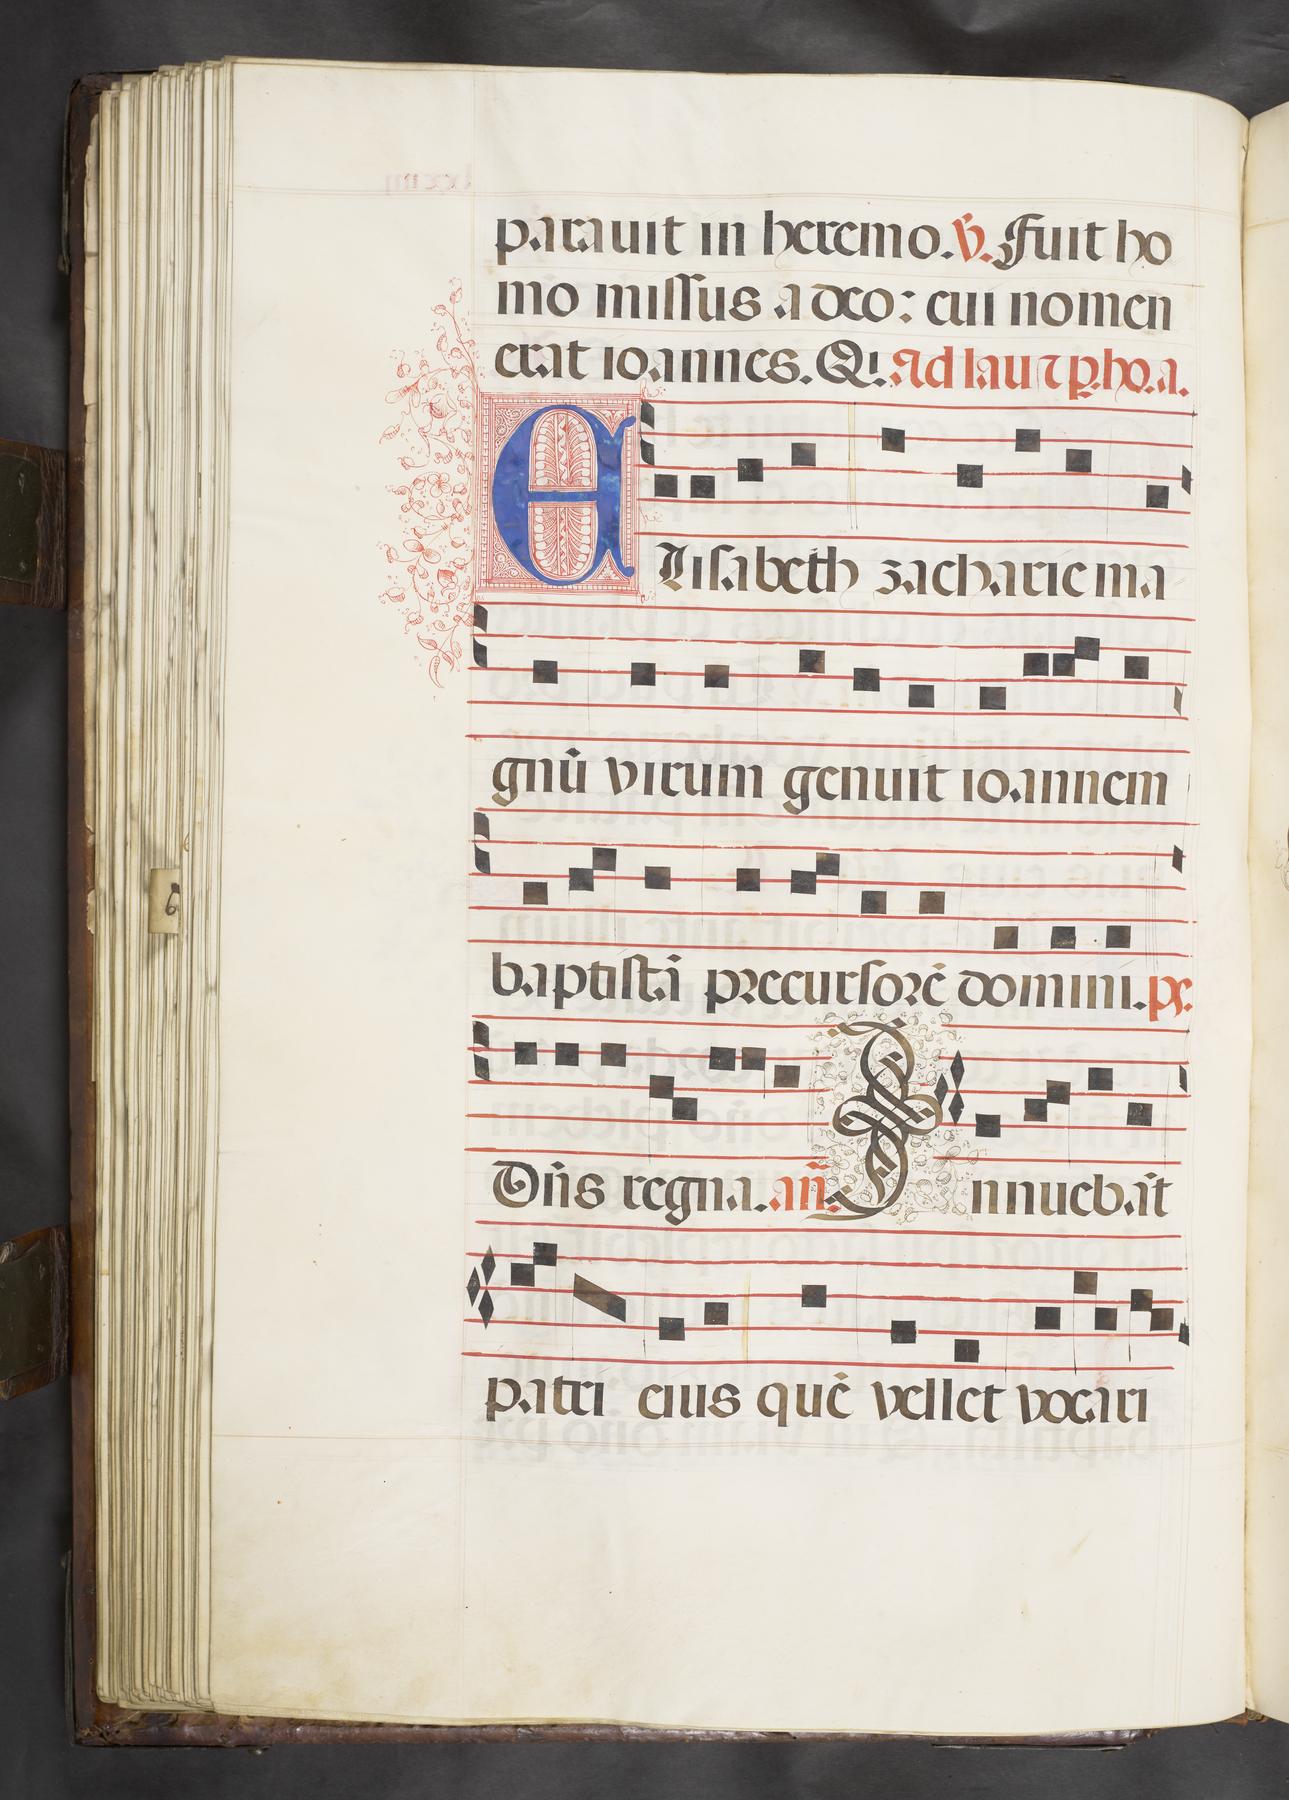 parauit in heremo. V. Fuit ho
mo missus a deo: cui nomen
erat ioannes. Q. Ad lau r p. ho. a.
Elisabeth zacharie ma
gnū virum genuit ioannem
baptistā precursorē domini. ps.
Dn̄s regna. an̄. Innuebāt
patri eius quē vellet vocari
6